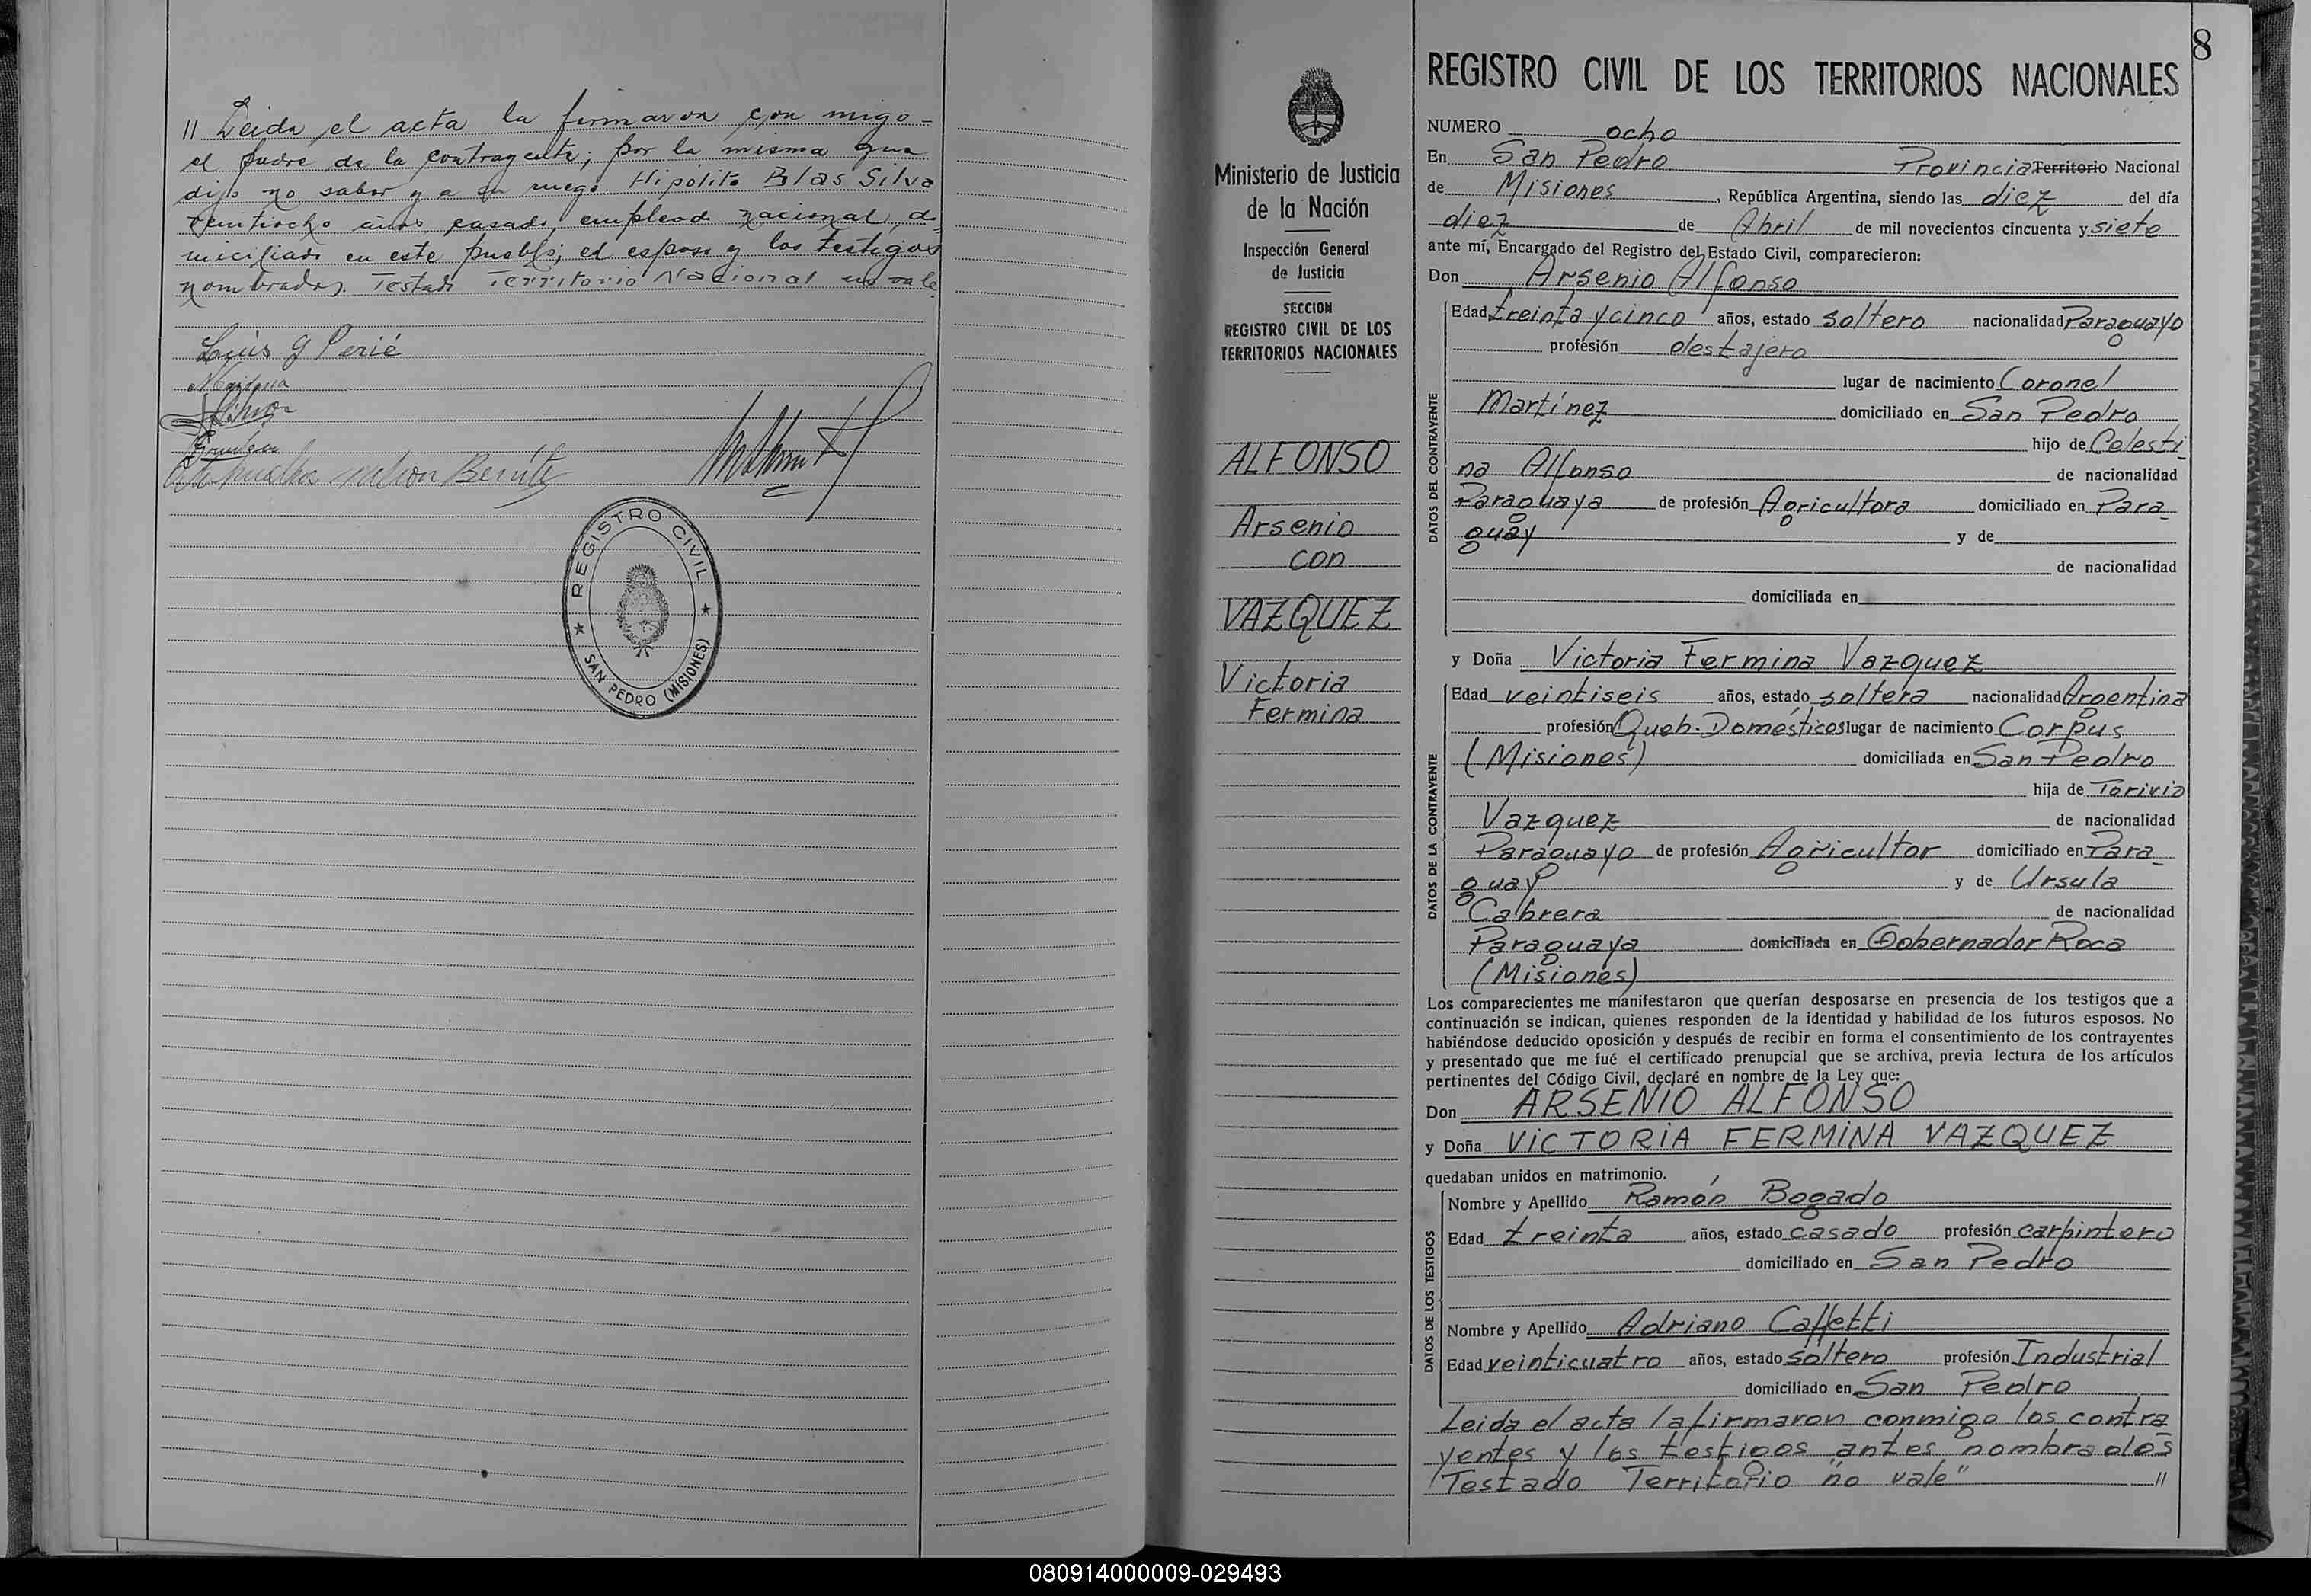 // Leida el acta la firmaron con migo=
el padre de la contrayente, por la misma que
dijo no saber y a su ruego Hipólito Blas Silva
veintiocho años, casado, empleado nacional, do-
miciliado en este pueblo; el esposo y los testigos
nombrados. Testado Territorio Nacional no vale.
Luis G Perié
Nelson Benítez
REGISTRO CIVIL
SAN PEDRO (MISIONES)
8
Ministerio de Justicia
de la Nación
Inspección General
de Justicia
SECCION
REGISTRO CIVIL DE LOS
TERRITORIOS NACIONALES
ALFONSO
Arsenio
con
VAZQUEZ
Victoria
Fermina
REGISTRO CIVIL DE LOS TERRITORIOS NACIONALES
NUMERO ocho
En San Pedro Provincia Territorio Nacional
de Misiones, República Argentina, siendo las diez del día
diez de Abril de mil novecientos cincuenta y siete
ante mí, Encargado del Registro del Estado Civil, comparecieron:
Don Arsenio Alfonso
DATOS DEL CONTRAYENTE
Edad treinta y cinco años, estado soltero nacionalidad Paraguayo
profesión destajero
lugar de nacimiento Coronel
Martínez domiciliado en San Pedro
hijo de Celesti-
na Alfonso de nacionalidad
Paraguaya de profesión Agricultora domiciliado en Para-
guay y de
de nacionalidad
domiciliada en
y Doña Victoria Fermina Vazquez
DATOS DE LA CONTRAYENTE
Edad veintiseis años, estado soltera nacionalidad Argentina
profesión Queh. Domésticos lugar de nacimiento Corpus
(Misiones) domiciliada en San Pedro
hija de Torivio
Vazquez de nacionalidad
Paraguayo de profesión Agricultor domiciliado en Para-
guay y de Ursula
Cabrera de nacionalidad
Paraguaya domiciliada en Gobernador Roca
(Misiones)
Los comparecientes me manifestaron que querían desposarse en presencia de los testigos que a
continuación se indican, quienes responden de la identidad y habilidad de los futuros esposos. No
habiéndose deducido oposición y después de recibir en forma el consentimiento de los contrayentes
y presentado que me fué el certificado prenupcial que se archiva, previa lectura de los artículos
pertinentes del Código Civil, declaré en nombre de la Ley que:
Don ARSENIO ALFONSO
y Doña VICTORIA FERMINA VAZQUEZ
quedaban unidos en matrimonio.
DATOS DE LOS TESTIGOS
Nombre y Apellido Ramón Bogado
Edad treinta años, estado casado profesión carpintero
domiciliado en San Pedro
Nombre y Apellido Adriano Caffetti
Edad veinticuatro años, estado soltero profesión Industrial
domiciliado en San Pedro
Leida el acta la firmaron conmigo los contra
yentes y los testigos antes nombrados
Testado Territorio "no vale" //
080914000009-029493